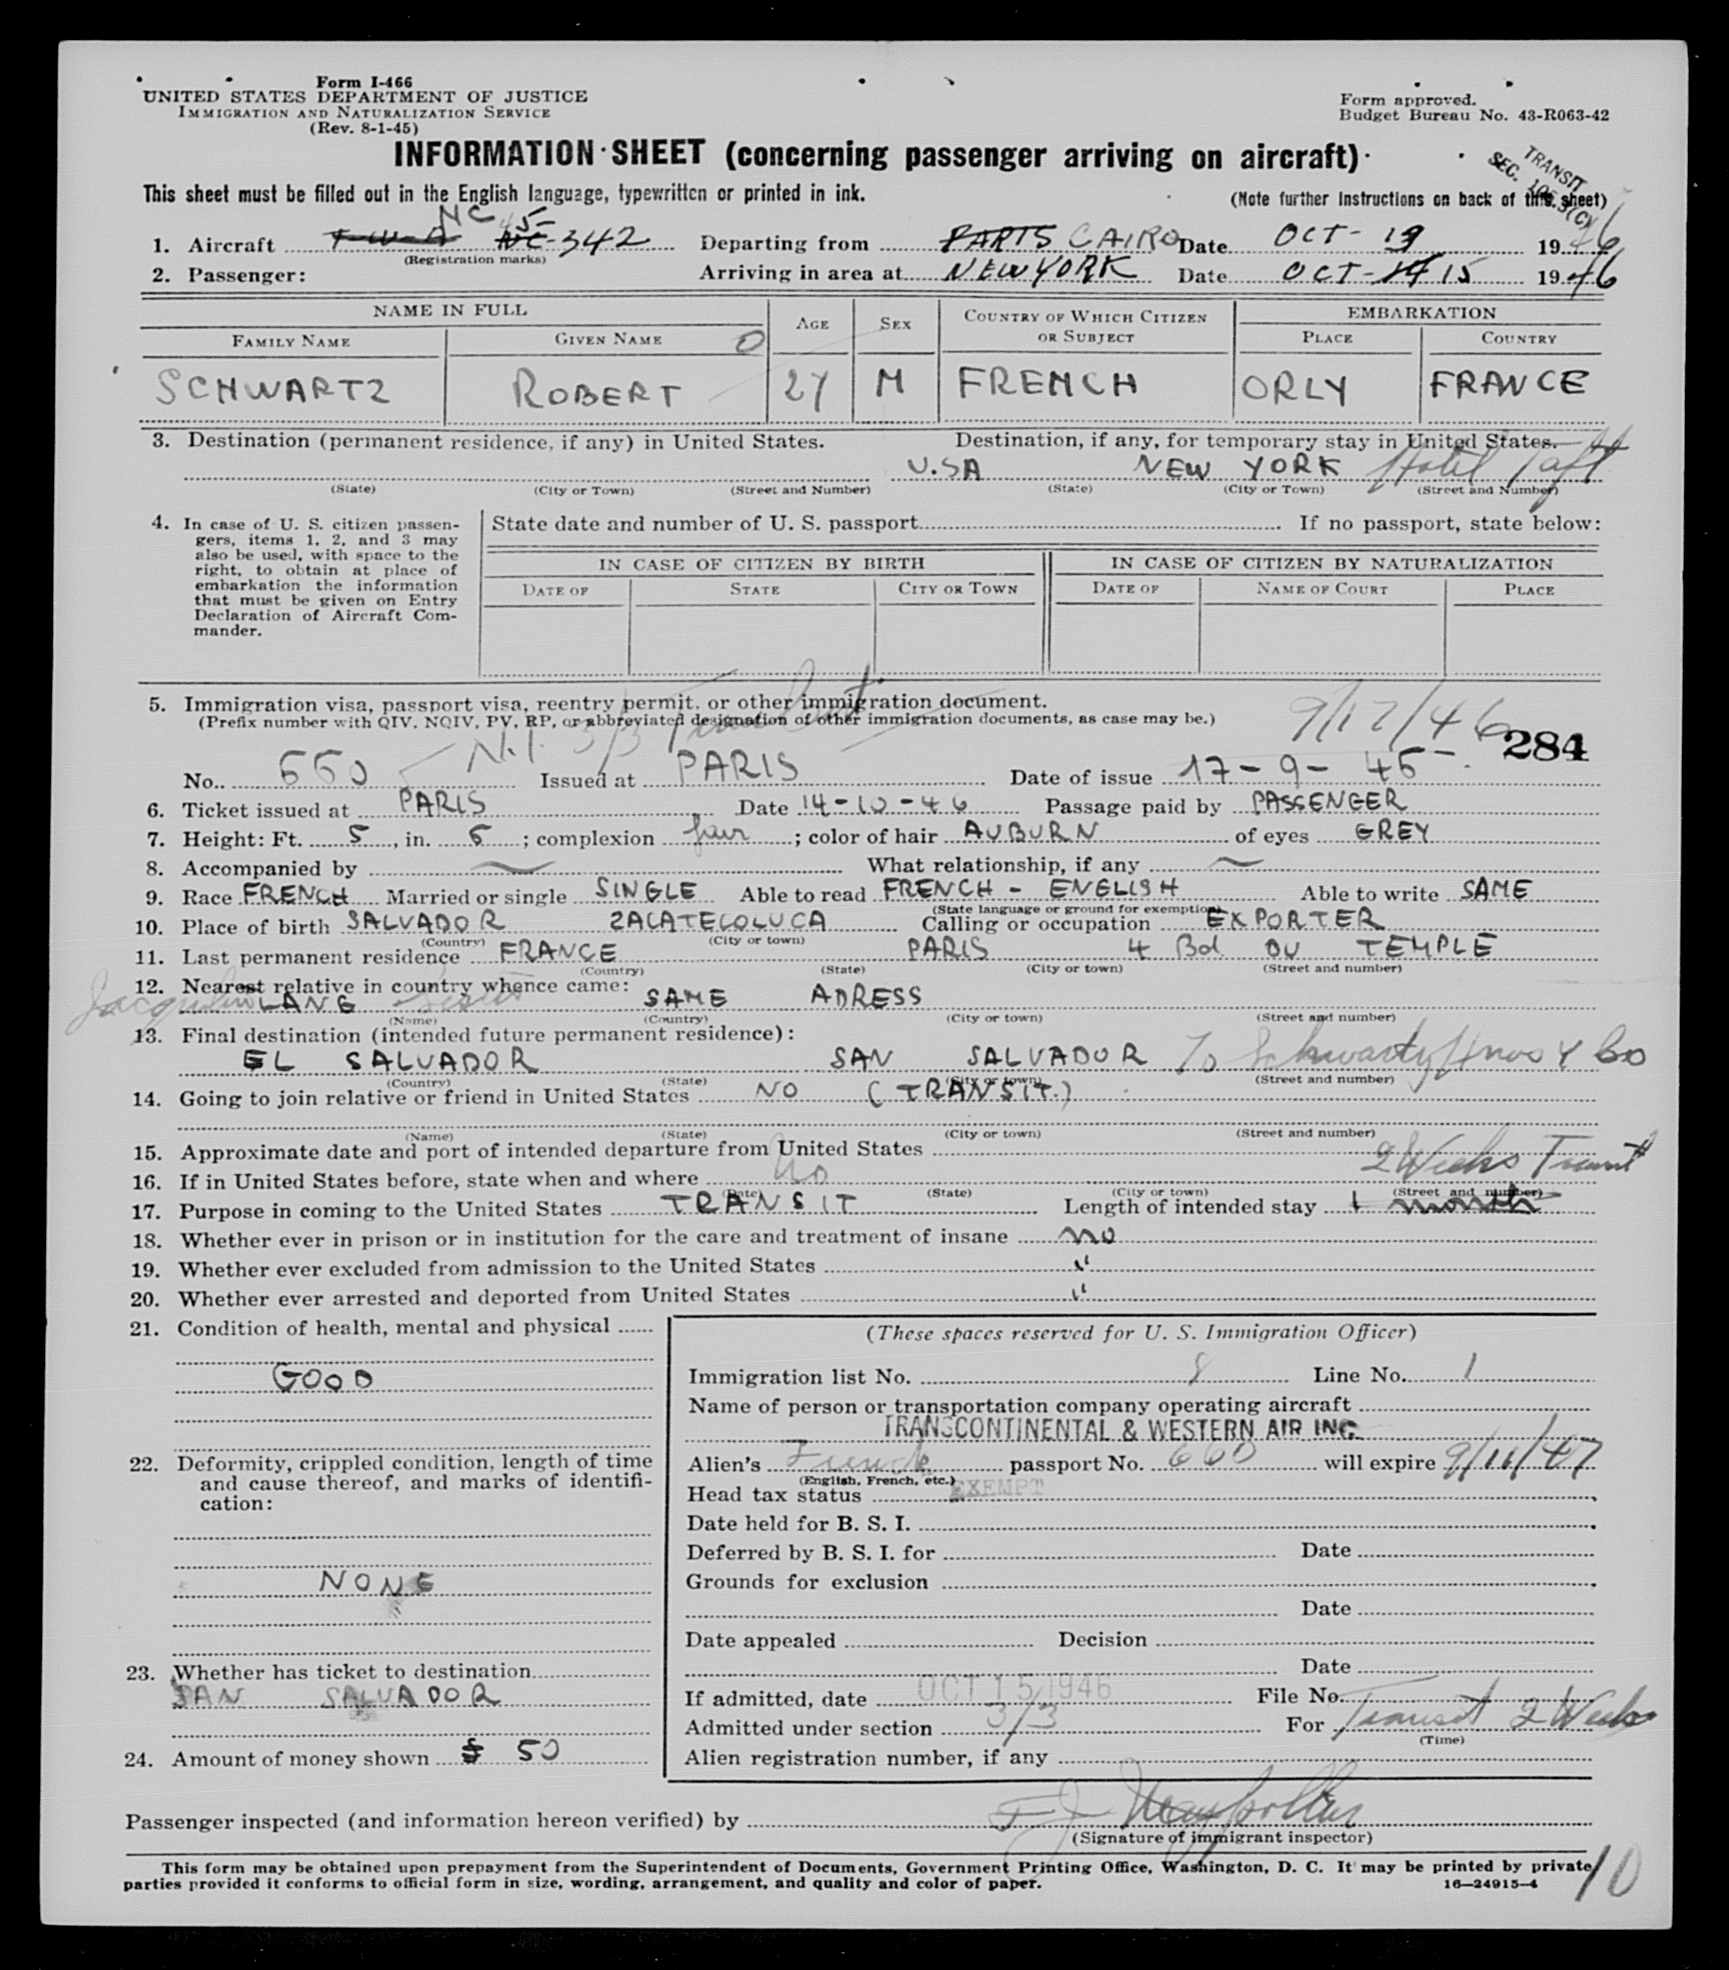 Form I-466
UNITED STATES DEPARTMENT OF JUSTICE
IMMIGRATION AND NATURALIZATION SERVICE
(Rev. 8-1-45)
Form approved.
Budget Bureau No. 43-R063-42
INFORMATION SHEET (concerning passenger arriving on aircraft)
TRANSIT
SEC.
This sheet must be filled out in the English language, typewritten or printed in ink.
(Note further instructions on back of this sheet)
NC 45
1. Aircraft T-W-A NC-342 Departing from PARIS CAIRO Date OCT- 19 46
(Registration marks)
2. Passenger: Arriving in area at NEW YORK Date OCT-14 15 1946
NAME IN FULL AGE SEX COUNTRY OF WHICH CITIZEN OR SUBJECT EMBARKATION
FAMILY NAME GIVEN NAME PLACE COUNTRY
SCHWARTZ ROBERT 27 M FRENCH ORLY FRANCE
3. Destination (permanent residence, if any) in United States. Destination, if any, for temporary stay in United States.
U.SA NEW YORK Hotel Taft
(State) (City or Town) (Street and Number) (State) (City or Town) (Street and Number)
4. In case of U. S. citizen passen-
gers, items 1, 2, and 3 may
also be used, with space to the
right, to obtain at place of
embarkation the information
that must be given on Entry
Declaration of Aircraft Com-
mander.
State date and number of U. S. passport If no passport, state below:
IN CASE OF CITIZEN BY BIRTH IN CASE OF CITIZEN BY NATURALIZATION
DATE OF STATE CITY OR TOWN DATE OF NAME OF COURT PLACE
5. Immigration visa, passport visa, reentry permit, or other immigration document.
(Prefix number with QIV, NQIV, PV, RP, or abbreviated designation of other immigration documents, as case may be.)
3/3 9/17/46 284
No. 660 Issued at PARIS Date of issue 17-9-46
6. Ticket issued at PARIS Date 14-10-46 Passage paid by PASSENGER
7. Height: Ft. 5, in. 6; complexion fair; color of hair AUBURN of eyes GREY
8. Accompanied by ~ What relationship, if any ~
9. Race FRENCH Married or single SINGLE Able to read FRENCH - ENGLISH Able to write SAME
(State language or ground for exemption)
10. Place of birth SALVADOR ZACATECOLUCA Calling or occupation EXPORTER
(Country) (City or town)
11. Last permanent residence FRANCE PARIS 4 Bd DU TEMPLE
(Country) (State) (City or town) (Street and number)
12. Nearest relative in country whence came:
Jacqueline LANG SAME ADRESS
(Name) (Country) (City or town) (Street and number)
13. Final destination (intended future permanent residence):
EL SALVADOR SAN SALVADOR To Schwartz Hnos Y Co
(Country) (State) (City or town) (Street and number)
14. Going to join relative or friend in United States NO (TRANSIT.)
(Name) (State) (City or town) (Street and number)
15. Approximate date and port of intended departure from United States
16. If in United States before, state when and where No 2 Weeks Transit
(Date) (State) (City or town) (Street and number)
17. Purpose in coming to the United States TRANSIT Length of intended stay 1 month
18. Whether ever in prison or in institution for the care and treatment of insane no
19. Whether ever excluded from admission to the United States "
20. Whether ever arrested and deported from United States "
21. Condition of health, mental and physical
GOOD
22. Deformity, crippled condition, length of time
and cause thereof, and marks of identifi-
cation:
NONE
23. Whether has ticket to destination
SAN SALVADOR
24. Amount of money shown $ 50
(These spaces reserved for U. S. Immigration Officer)
Immigration list No. 8 Line No. 1
Name of person or transportation company operating aircraft
TRANSCONTINENTAL & WESTERN AIR INC
Alien's French passport No. 660 will expire 9/16/47
(English, French, etc.)
Head tax status EXEMPT
Date held for B. S. I.
Deferred by B. S. I. for Date
Grounds for exclusion
Date
Date appealed Decision
Date
If admitted, date OCT 15 1946 File No.
Admitted under section 3/3 For Transit 2 Weeks
(Time)
Alien registration number, if any
Passenger inspected (and information hereon verified) by
(Signature of immigrant inspector)
This form may be obtained upon prepayment from the Superintendent of Documents, Government Printing Office, Washington, D. C. It may be printed by private
parties provided it conforms to official form in size, wording, arrangement, and quality and color of paper.
16—24915-4
10